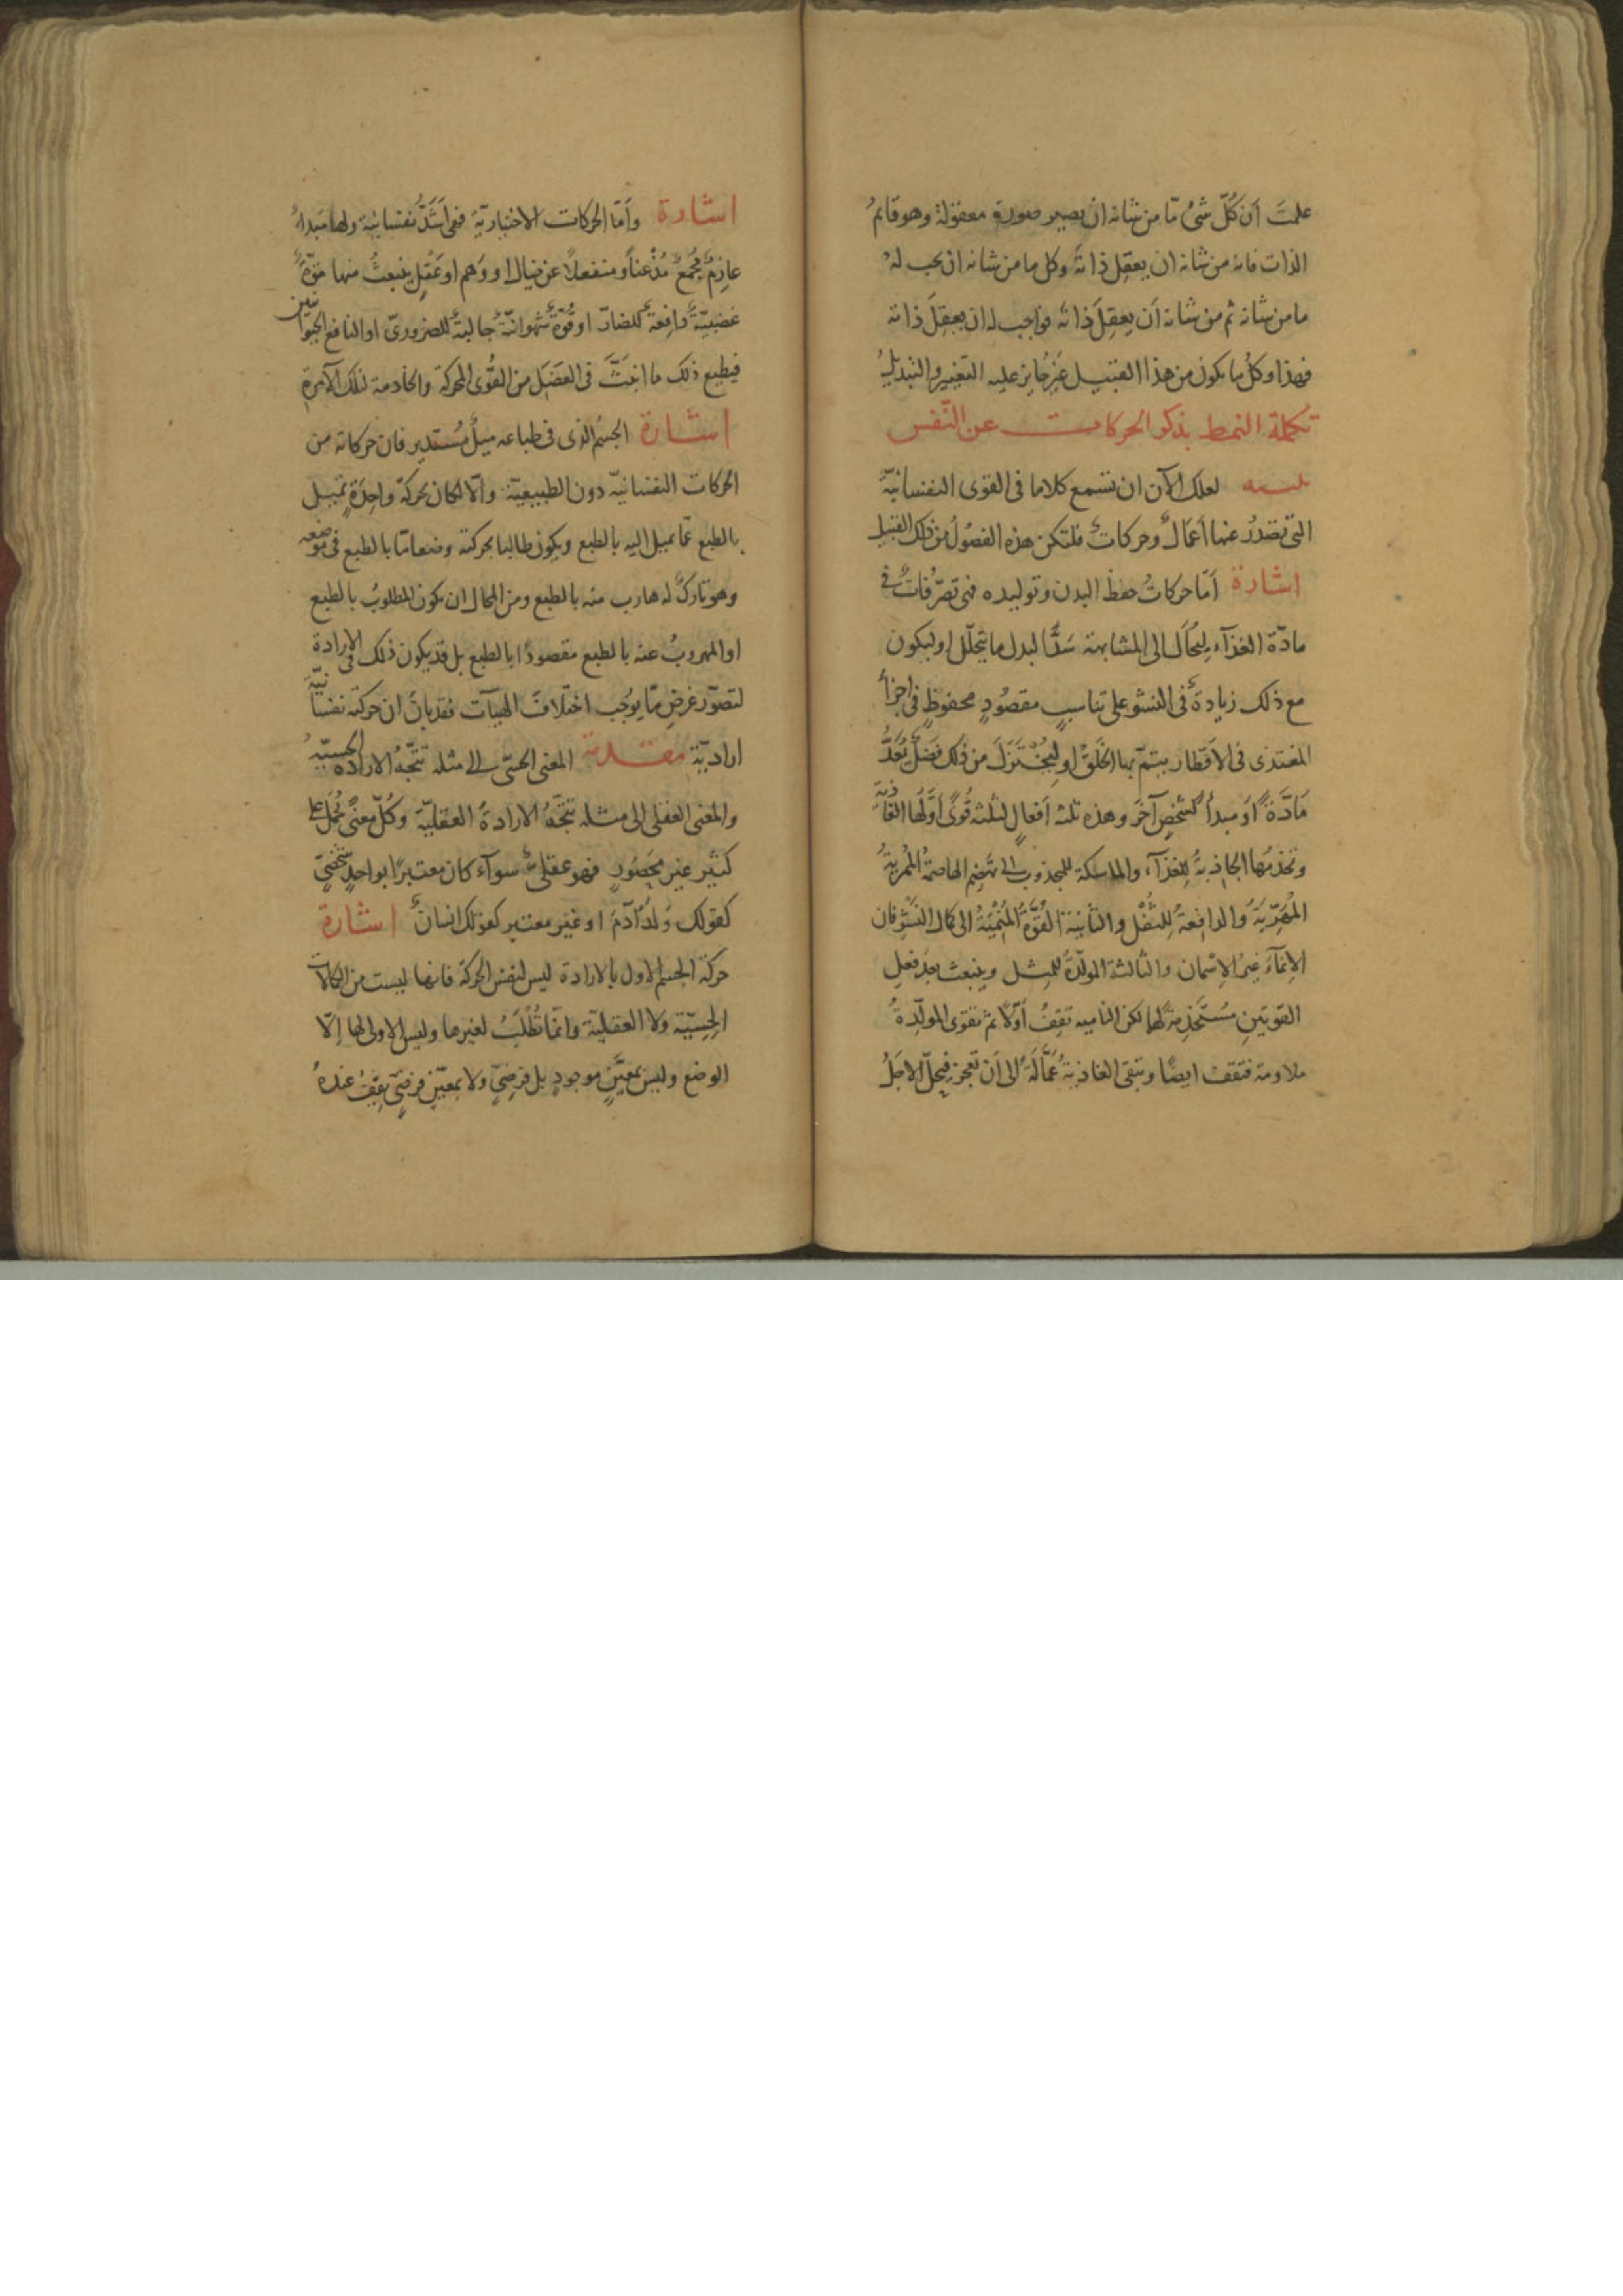 علمتَ اَن كلّ شئ مّا من شانه ان يصير صورة معقولة وهو قايم
الذات فانه من شانه ان يعقل ذاتهُ وكل ما من شانه ان يجب لهُ
ما من شانه ثم من شانه اَن يعقِلَ ذاته فواجب له ان يعقِلَ ذاته
فهذا وكلُ ما يكون من هذا القبيل غيرُ جايز عليه التغيير والتبديل
تكملة النمط بذكر الحركات عن النّفس
تنبيه لعلك الآن ان تسمع كلاما فى القوى النفسانيّة
التى تصدُر عنها اَعمالٌ وحركاتٌ فلتكن هذه الفصُولُ من ذلك القبيل
اشارة اَمّا حركاتُ حفظ البدن وتوليده فهى تصرّفاتٌ فى
مادّة الغذآء ليُحَالَ الى المشابهة سَدًّا لبدل ما يتحلّل او ليكون
مع ذلك زيادةً فى النشو على تناسبٍ مقصُودٍ محفوظٍ فى اجزآءِ
المغتذى فى الاَقطار يتمّ بها الخَلقُ او ليُختَزَلَ من ذلك فضلٌ يُعَدُّ
مَادَّةً اَو مبدأً لشخصٍ آخرَ وهذه ثلثه اَفعالٍ لثلثه قُوىً اَوّلَها الغاذيةُ
وتخدمُها الجاذبةُ للغذآءِ والماسكة للمجذوب الى تهضم الهاضمةُ المُربيةُ
المُهَرِّيَةُ والدافعةُ للثُفْلِ والثانية القُوَّةُ المُنْمِيَةُ الى كمال النَشْوِ فان
الاِنمآءَ غيرُ الاِسْمان والثالثة المولّدةُ للمِثل وينبعث بعد فعلِ
القوتينِ مُستَخدِمةً لهما لكن الناميه تقِفُ اَوّلاً ثم تقوى المولّدةُ
ملاومة فتقف ايضًا وتبقى الغاذيةُ عَمَّالَةً الى اَن تعجز فيحلّ الاجَلُ
اشارة واَمّا الحركات الاختياريّة فهى اَشَدُّ نفسانيّة ولها مَبدأٌ
عازِمٌ مُجْمِعٌ مُذْعناً ومنفعلاً عن خيال او وَهم او عَقلٍ ينبعثُ منها قوّةٌ
غضبيّةٌ دافِعةٌ للضارّ او قُوّةٌ شهوانيّةٌ جالبةٌ للضرورىّ او النافع الحيوانيين
فيطيع ذلك ما انبثَّ فى العَضَل من القُوى المحركة والخادمة لتلك الآمرة
اشارة الجسُم الذى فى طباعه ميلٌ مُستَدير فان حركاته من
الحركات النفسانيّه دون الطبيعيّة والّا لكان بحركةٍ واحِدَةٍ تميل
بالطبع عمّا تميل اليه بالطبع ويكون طالبا بحركته وضعا مّا بالطبع فى موضعه
وهو تاركٌ له هارب منه بالطبع ومن المحال ان يكون المطلوبُ بالطبع
او المهروبُ عنه بالطبع مقصودًا بالطبع بل قد يكون ذلك فى الارادة
لتصوّر غرضٍ مّا يوجُب اختلافَ الهيآت فقد بانَ ان حركته نفسانيّة
اراديّة مقدمة المعنى الحسّى الى مثله تتَّجهُ الارادة الحسيّة
والمعنى العقلى الى مثله تتَّجهُ الارادةُ العقليّة وكُلّ معنًى يُحمَل على
كثير غير محصُورٍ فهو عقلىٌّ سوآء كان معتبرًا بواحدٍ شخصىّ
كقولك وَلَدُ آدمَ او غير معتبر كقولك انسانٌ اشارة
حركة الجسم الاول بالارادة ليس لنفس الحركة فانها ليست من الكمالات
الحِسِيّة ولا العقليّة وانّما تُطْلَبُ لغيرها وليس الاولى لها اِلّا
الوضع وليس بمعيَّنٍ موجودٍ بل فرضىٍّ ولا بمعيَّنٍ فرضىٍّ يقِفُ عندهُ